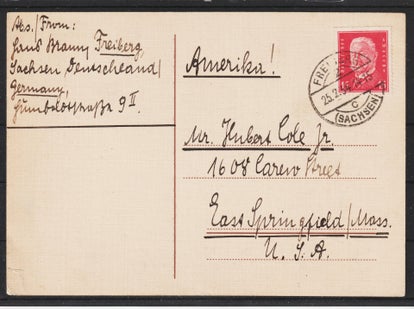 Abs./From:
Hans Braun, Freiberg,
Sachsen, Deutschland/
Germany,
Humboldtstraße 9 II
Amerika!
Mr. Hubert Cole Jr.
1608 Carew Street
East Springfield/Mass.
U. S. A.
c
(SACHSEN)